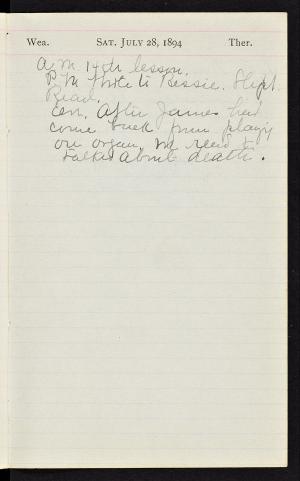 Wea. SAT. JULY 28, 1894 Ther.
A.M. 14th lesson.
P.M. Wrote to Bessie. Slept.
Read.
Eve. After James had
come back from playing
on organ, we read &
talked about death.